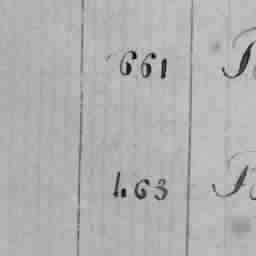 661
463